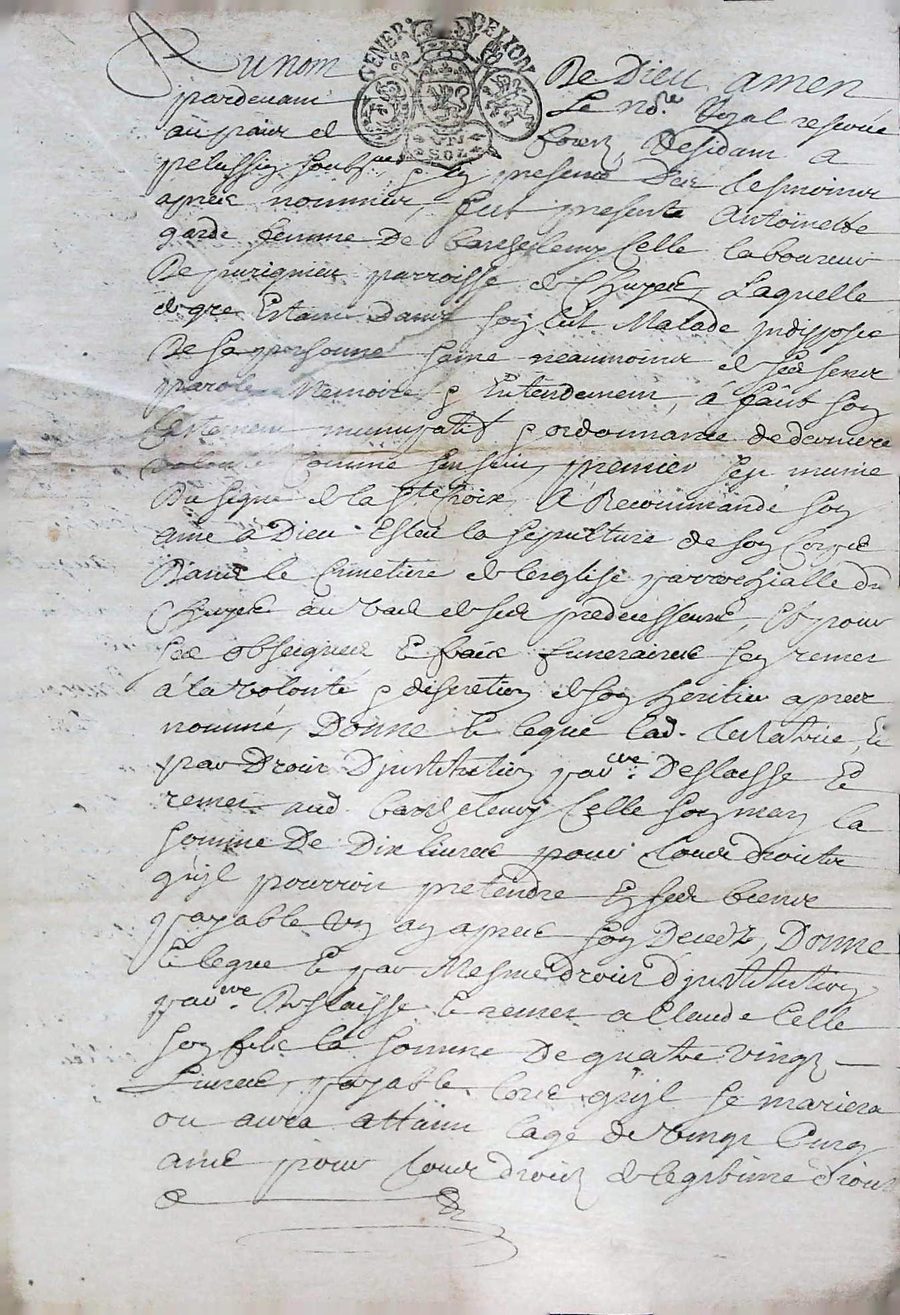 GENER. DE LION
VN
SOL
Au nom De Dieu amen
pardevant Le no.re Royal reservé
au pais de forez, Residant a
pelussin soubs.né & en presence Des tesmoins
apres nommes, fut presente Antoinette
garde femme De Barthelemy Celle laboureur
De parroisse de Chuyer, Laquelle
de gre Estant dans son lict Malade indisposée
De sa personne saine neanmoins de ses sens
parole Memoire & Entendement, à faict son
testament nuncupatif & ordonnance de derniere
volonté comme sensuit, premier sest munie
Du signe de la s.te Croix, A Recommandé son
ame a Dieu Esleu la sepulture de son Corps
Dans le Cimetiere de leglise parrochialle du
Chuyer au vas de ses predecesseurs, Et pour
ses obseques & frais funeraires sen remet
a la volonté & discretion de son heritier apres
nommé, Donne & legue lad. testatrice, Et
par Droit D'institution par.re Deslaisse Et
remet aud. Barthelemy Celle son mary la
somme De Dix livres pour tous droits
quil pourroit pretendre En ses biens
payable un an apres son Decedz, Donne
& legue & par Mesme droit D'institution
par.re Deslaisse & remet a Claude Celle
son fils la somme De quatre vingt
Livres, payable lors quil se mariera
ou aura attaint lage de vingt cinq
ans pour tous droits de legitime droit